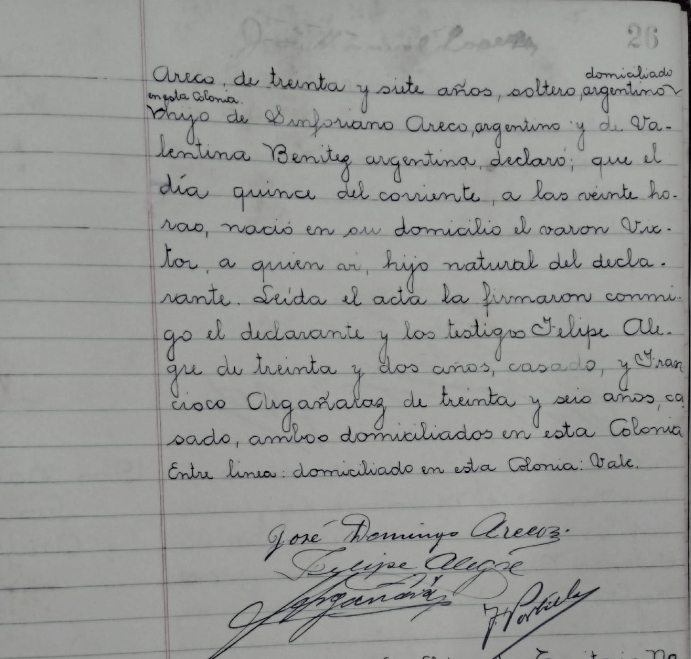 26
domiciliado
Areco, de treinta y siete años, soltero, argentino
en esta Colonia.
hijo de Sinforiano Areco, argentino y de Va-
lentina Benitez argentina, declaró; que el
día quince del corriente, a las veinte ho-
ras, nació en su domicilio el varon Vic-
tor, a quien vi, hijo natural del decla-
rante. Leída el acta la firmaron conmi-
go el declarante y los testigos Felipe Ale-
gre de treinta y dos años, casado, y Fran
cisco Argañaraz de treinta y seis años, ca
sado, ambos domiciliados en esta Colonia
Entre linea: domiciliado en esta Colonia: Vale.
José Domingo Arecoz.
Felipe Alegre